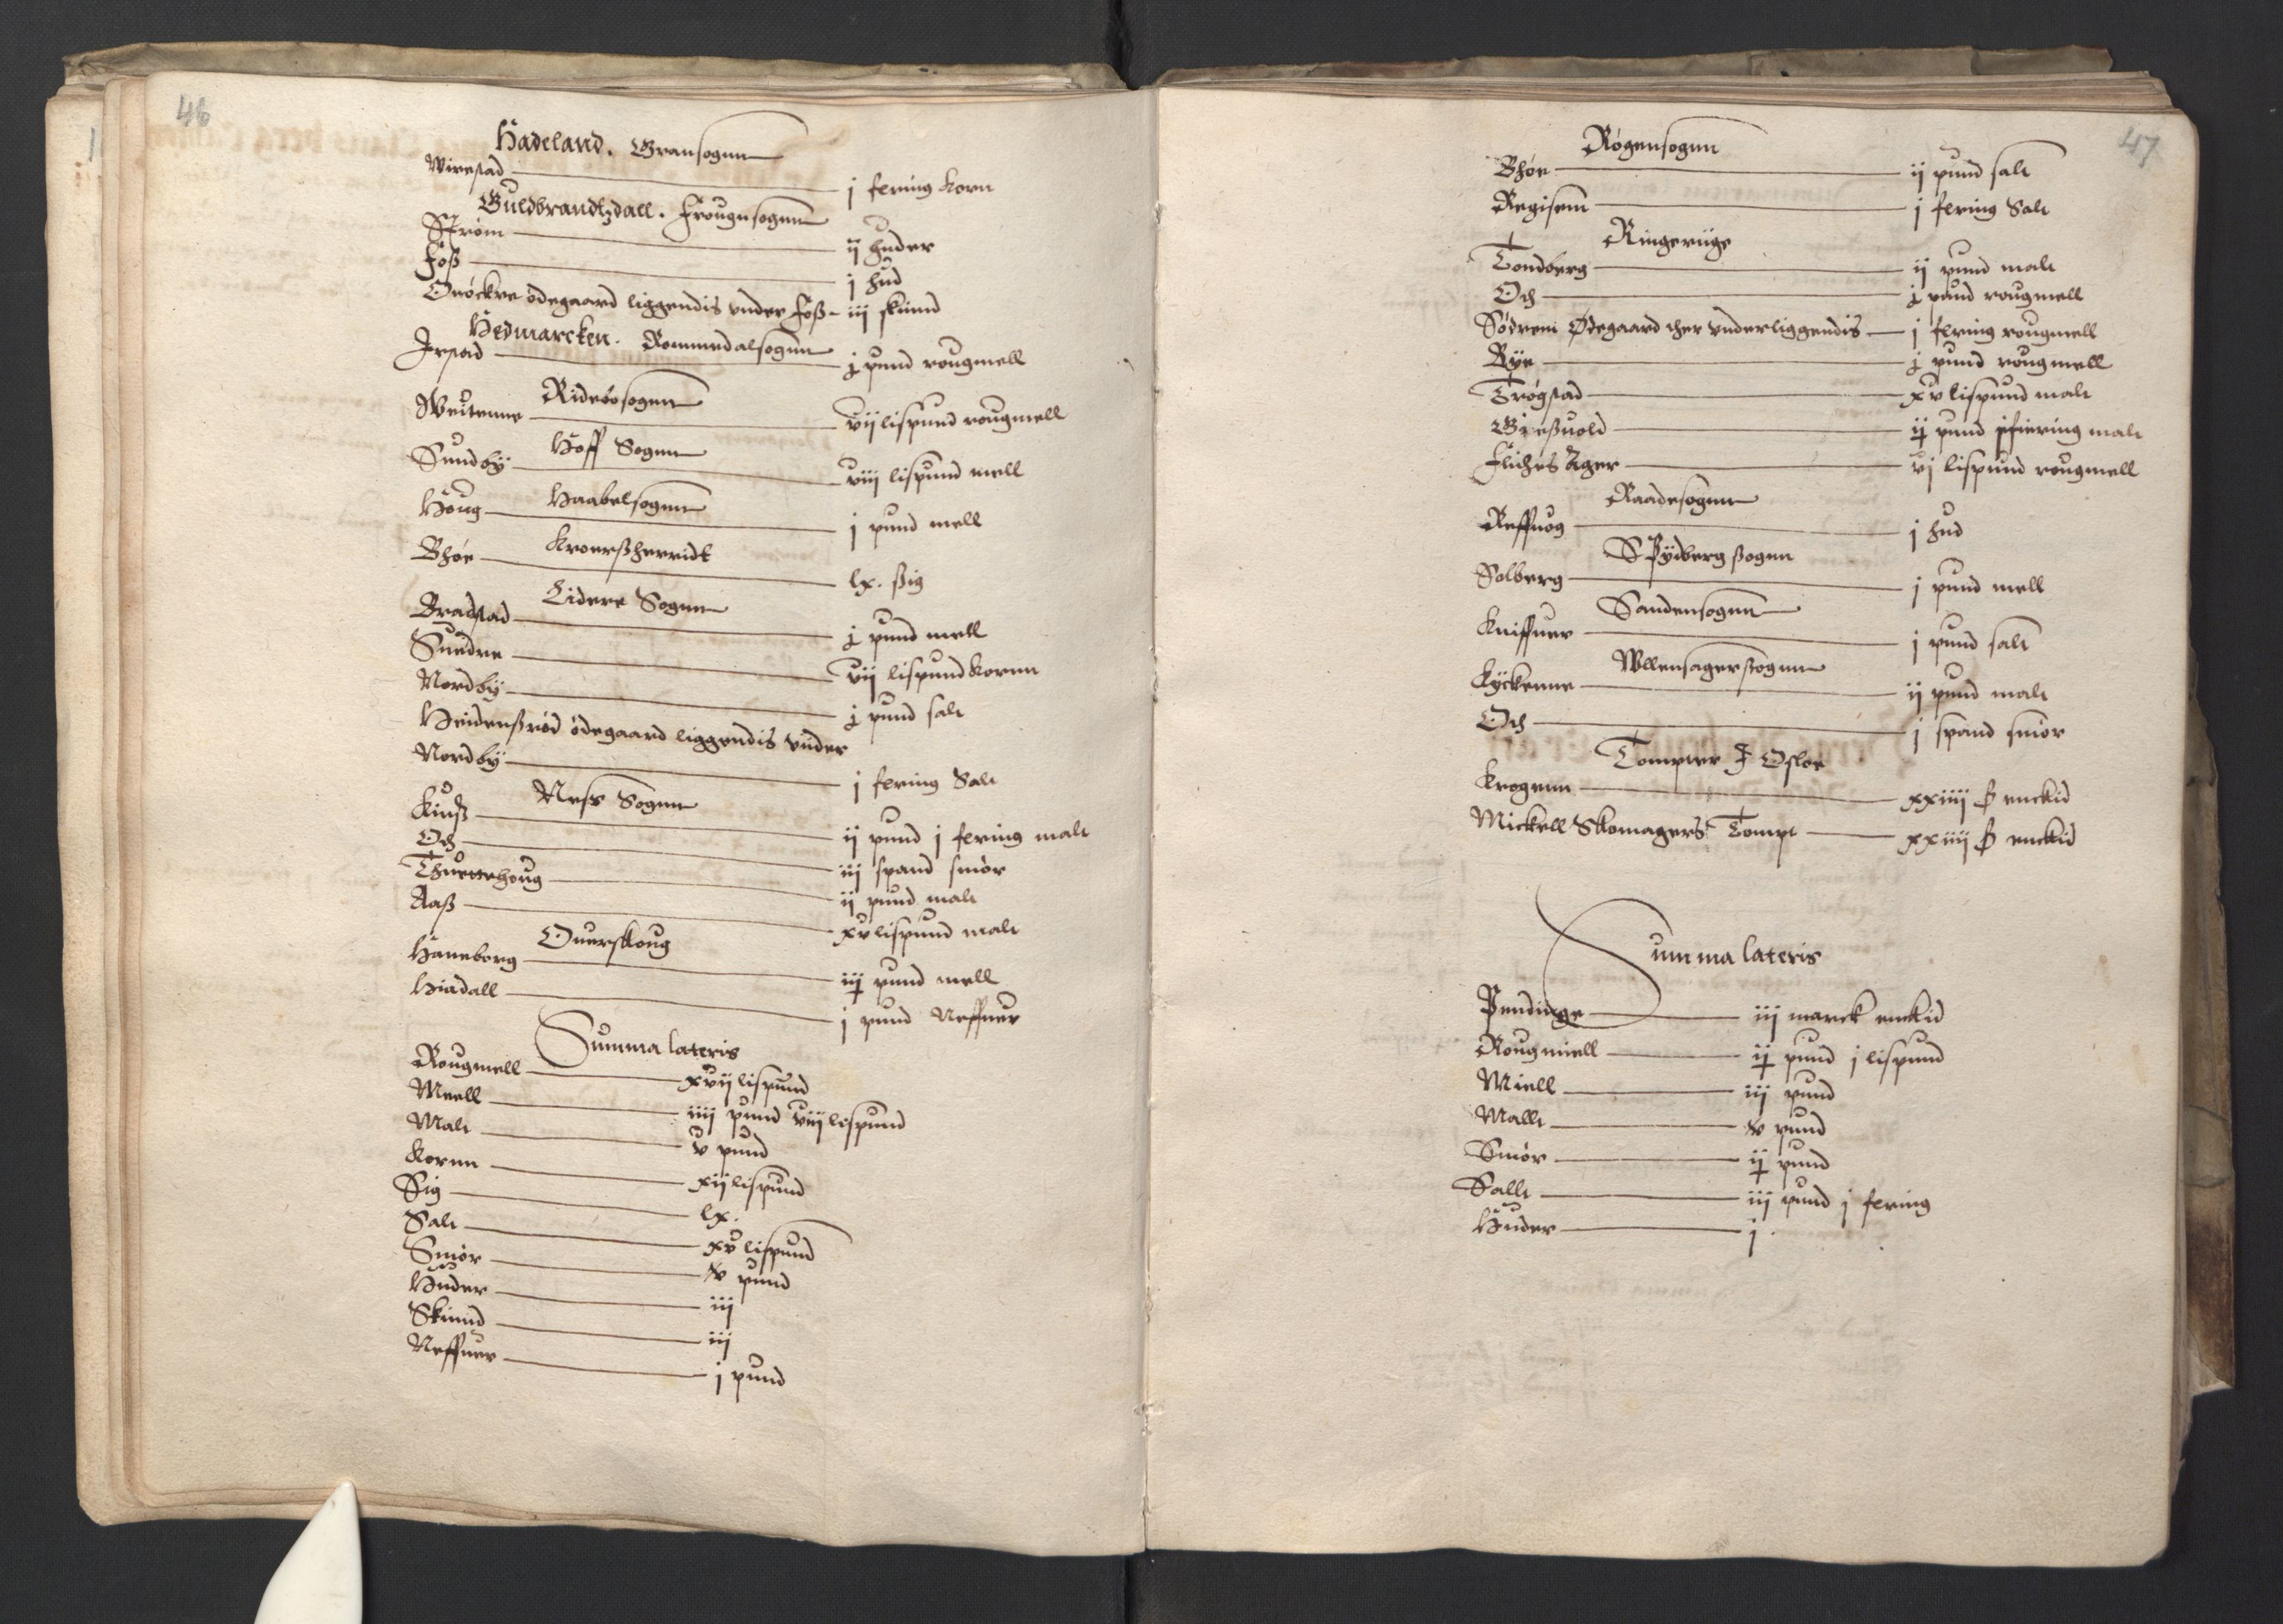 46
Hadeland. Gransognn
Wirestad — j fering Korn
Guldbrandtzdall. Frougnsognn
Strøm — ij huder
Foss — j hud
Brøckre ødegaard liggendis vnder Foß — iij skinnd
Hedmarcken. Rommedalsognn
Irstad — j pund rougmell
Rideøosognn
Weitenne — vij lispund rougmell
Hoff Sognn
Sundby — viij lispund mell
Haabelsognn
Houg — j pund mell
Kroerßherridt
Bhøe — lx. ßig
Eidere Sognn
Bradstad — j pund mell
Suedre — vij lispund Kornn
Nordby — j pund salt
Heidenßrød ødegaard liggendis vnder
Nordby — j fering Salt
Ness Sognn
Kinß — ij pund j fering malt
Och — iij spand smør
Thuettehoug — ij pund malt
Aaß — xv lispund malt
Ouerskoug
Haneborg — iij pund mell
Hiadall — j pund Neffuer
Summa lateris
Rougmell — xvij lispund
Meell — iiij pund viij lispund
Malt — v pund
Kornn — xij lispund
Sig — lx.
Salt — xv lispund
Smør — v pund
Huder — iij
Skinnd — iij
Neffuer — j pund
47
Røgensognn
Bhøe — ij pund salt
Regisem — j fering Salt
Ringeriige
Tondberg — ij pund malt
Och — j pund rougmell
Sødreni Ødegaard ther vnderliggendis — j fering rougmell
Rye — j pund rougmell
Trøgstad — xv lispund malt
Gießuold — ij pund j fiering malt
Flichis Ager — vj lispund rougmell
Raadesognn
Reffuog — j hud
Spydberg ßognn
Solberg — j pund mell
Sandensognn
Kniffuer — j pund salt
Wllensagerßognn
Kyckenne — ij pund malt
Och — j spand smør
Tompter I Osloe
Krogenn — xxiiij ß enckid
Mickell Skomagers Tompt — xxiiij ß enckid
Summa lateris
Pendinge — iij marck enckid
Rougmiell — ij pund j lispund
Miell — iij pund
Mallt — v pund
Smør — ij pund
Sallt — iij pund j fering
Huder — j.